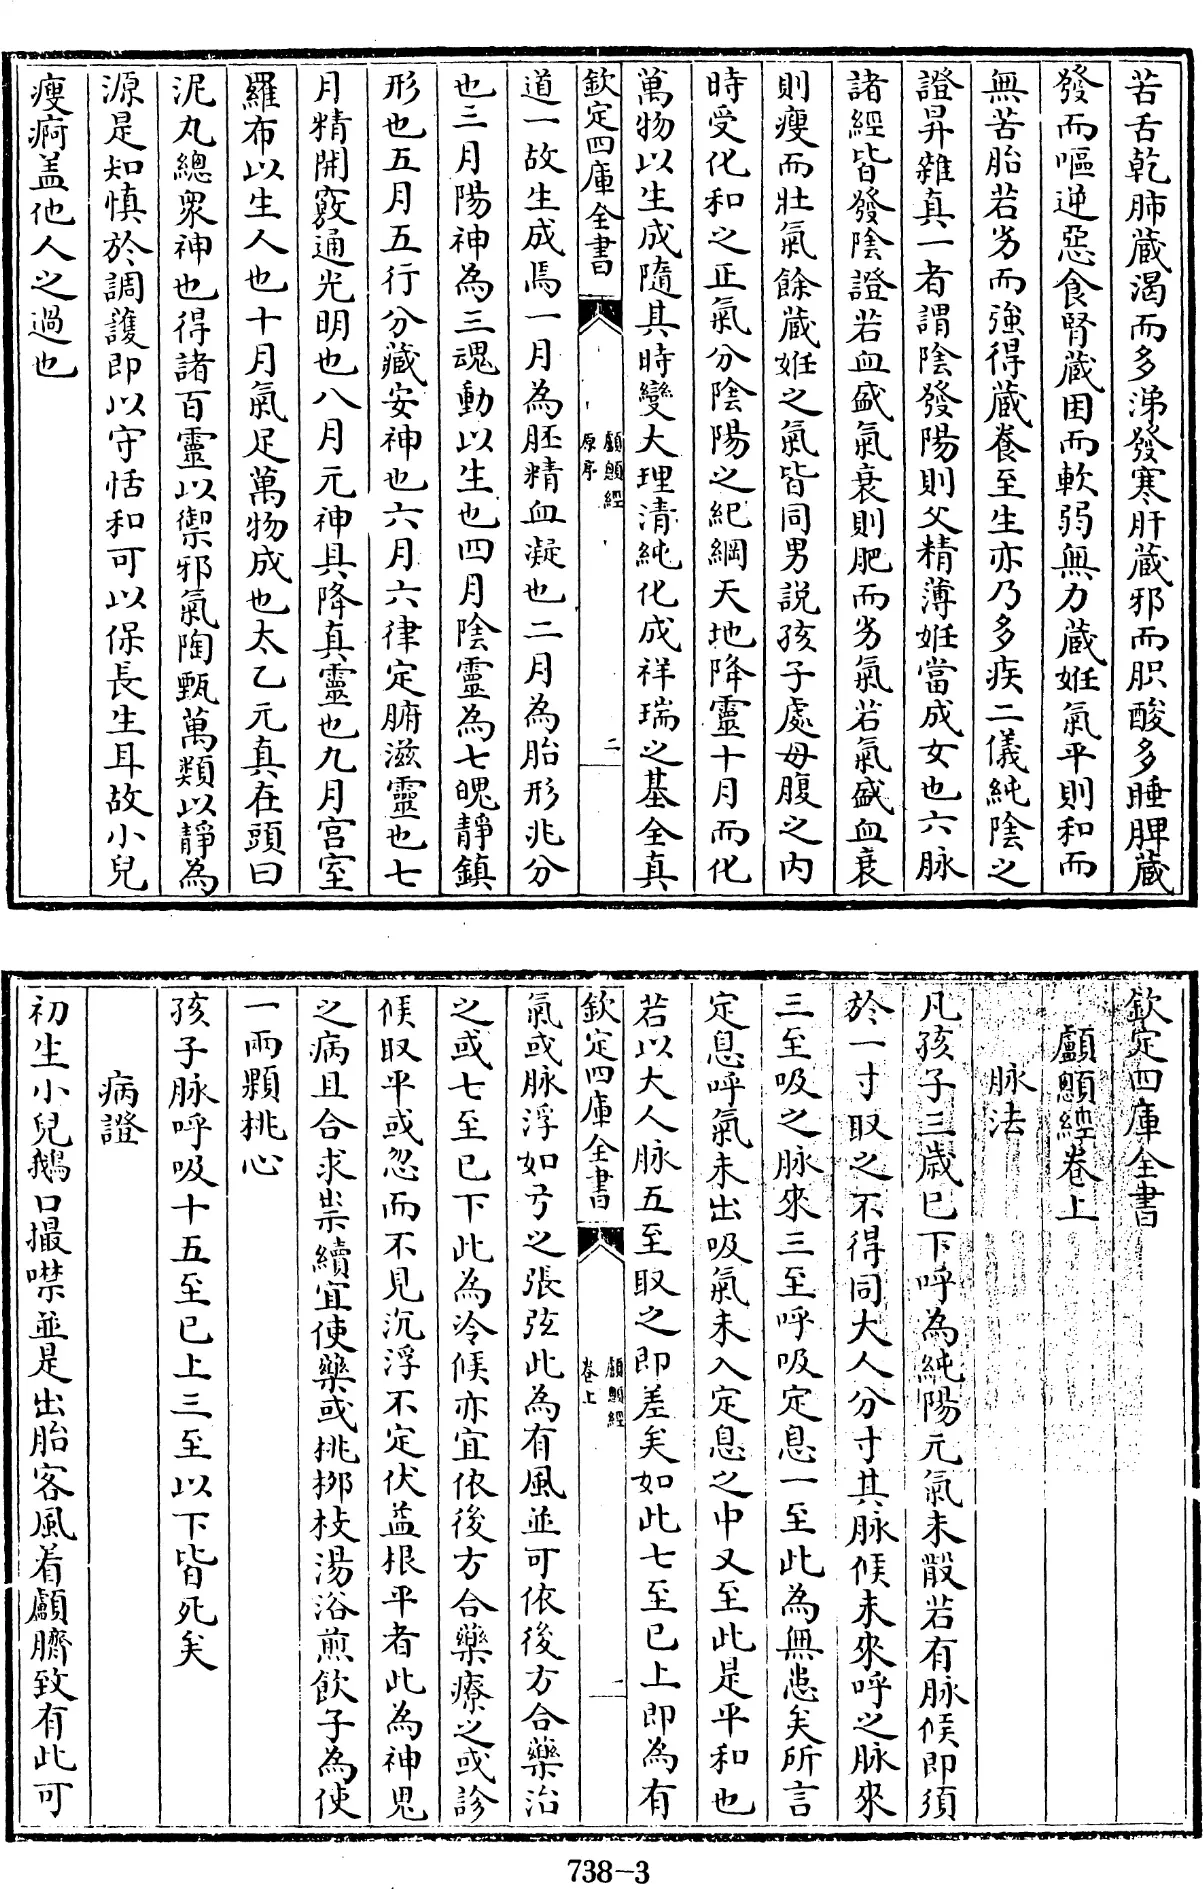 苦舌乾肺蔵渇而多涕發寒肝蔵邪而胑酸多睡脾蔵
發而嘔逆惡食腎蔵困而軟弱無力蔵姙氣平則和而
無苦胎若劣而強得蔵養至生亦乃多疾二儀純陰之
證昇雜真一者謂陰發陽則父精薄姙當成女也六脉
諸經皆發陰證若血盛氣衰則肥而劣氣若氣盛血衰
則瘦而壯氣餘蔵姙之氣皆同男説孩子處母腹之内
時受化和之正氣分陰陽之紀綱天地降靈十月而化
萬物以生成隨其時變大理清純化成祥瑞之基全真
欽定四庫全書
顱顖經
原序
二
道一故生成焉一月為胚精血凝也二月為胎形兆分
也三月陽神為三魂動以生也四月陰靈為七魄静鎮
形也五月五行分藏安神也六月六律定腑滋靈也七
月精開竅通光明也八月元神具降真靈也九月宫室
羅布以生人也十月氣足萬物成也太乙元真在頭曰
泥丸總衆神也得諸百靈以禦邪氣陶甄萬類以靜為
源是知慎於調護即以守恬和可以保長生耳故小兒
瘦疴盖他人之過也
欽定四庫全書
顱顖經卷上
脉法
凡孩子三歳已下呼為純陽元氣未散若有脉候即須
於一寸取之不得同大人分寸其脉候未來呼之脉來
三至吸之脉來三至呼吸定息一至此為無患矣所言
定息呼氣未出吸氣未入定息之中又至此是平和也
若以大人脉五至取之即差矣如此七至已上即為有
欽定四庫全書
顱顖經
卷上
一
氣或脉浮如弓之張弦此為有風並可依後方合藥治
之或七至已下此為冷候亦宜依後方合藥療之或診
候取平或忽而不見沉浮不定伏益根平者此為神鬼
之病且合求祟續宜使藥或桃栁枝湯浴煎飲子為使
一兩顆桃心
孩子脉呼吸十五至已上三至以下皆死矣
病證
初生小兒鵝口撮噤並是出胎客風着顱臍致有此可
738-3